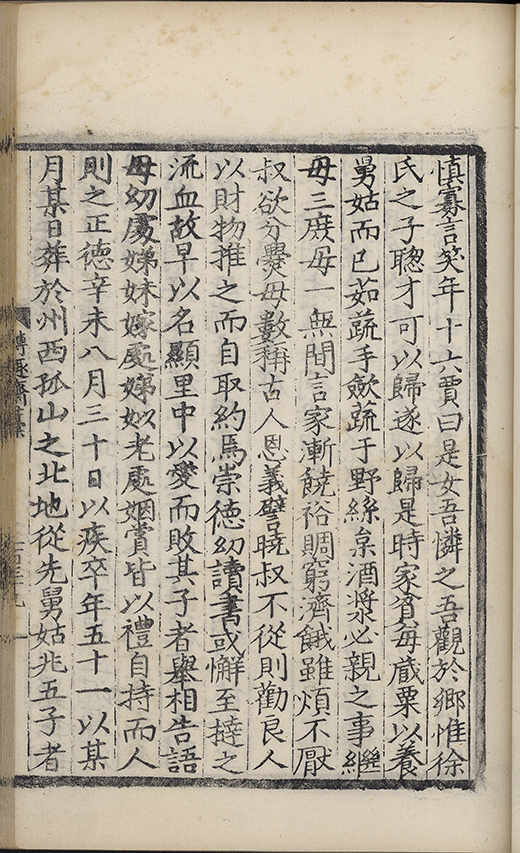 慎寡言笑年十六賈曰是女吾憐之吾觀於鄉惟徐
氏之子聰才可以歸遂以歸是時家貧毋蔵粟以養
舅姑而已茹蔬手歛蔬于野絲枲酒漿必親之事繼
毋三庶毋一無間言家漸饒裕賙窮濟餓雖煩不厭
叔欲分爨毋數稱古人恩義譬曉叔不從則勸良人
以財物推之而自取約焉崇德幼讀書或懈至撻之
流血故早以名顯里中以愛而敗其子者舉相告語
毋幼處娣妹嫁處娣姒老處姻賞皆以禮自持而人
則之正德辛未八月三十日以疾卒年五十一以某
月某日葬於州西孤山之北地從先舅姑兆五子者